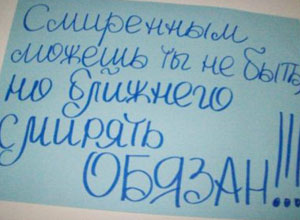 Смиренным
можешь ты не быть,
но ближнего
смирять
ОБЯЗАН!!!